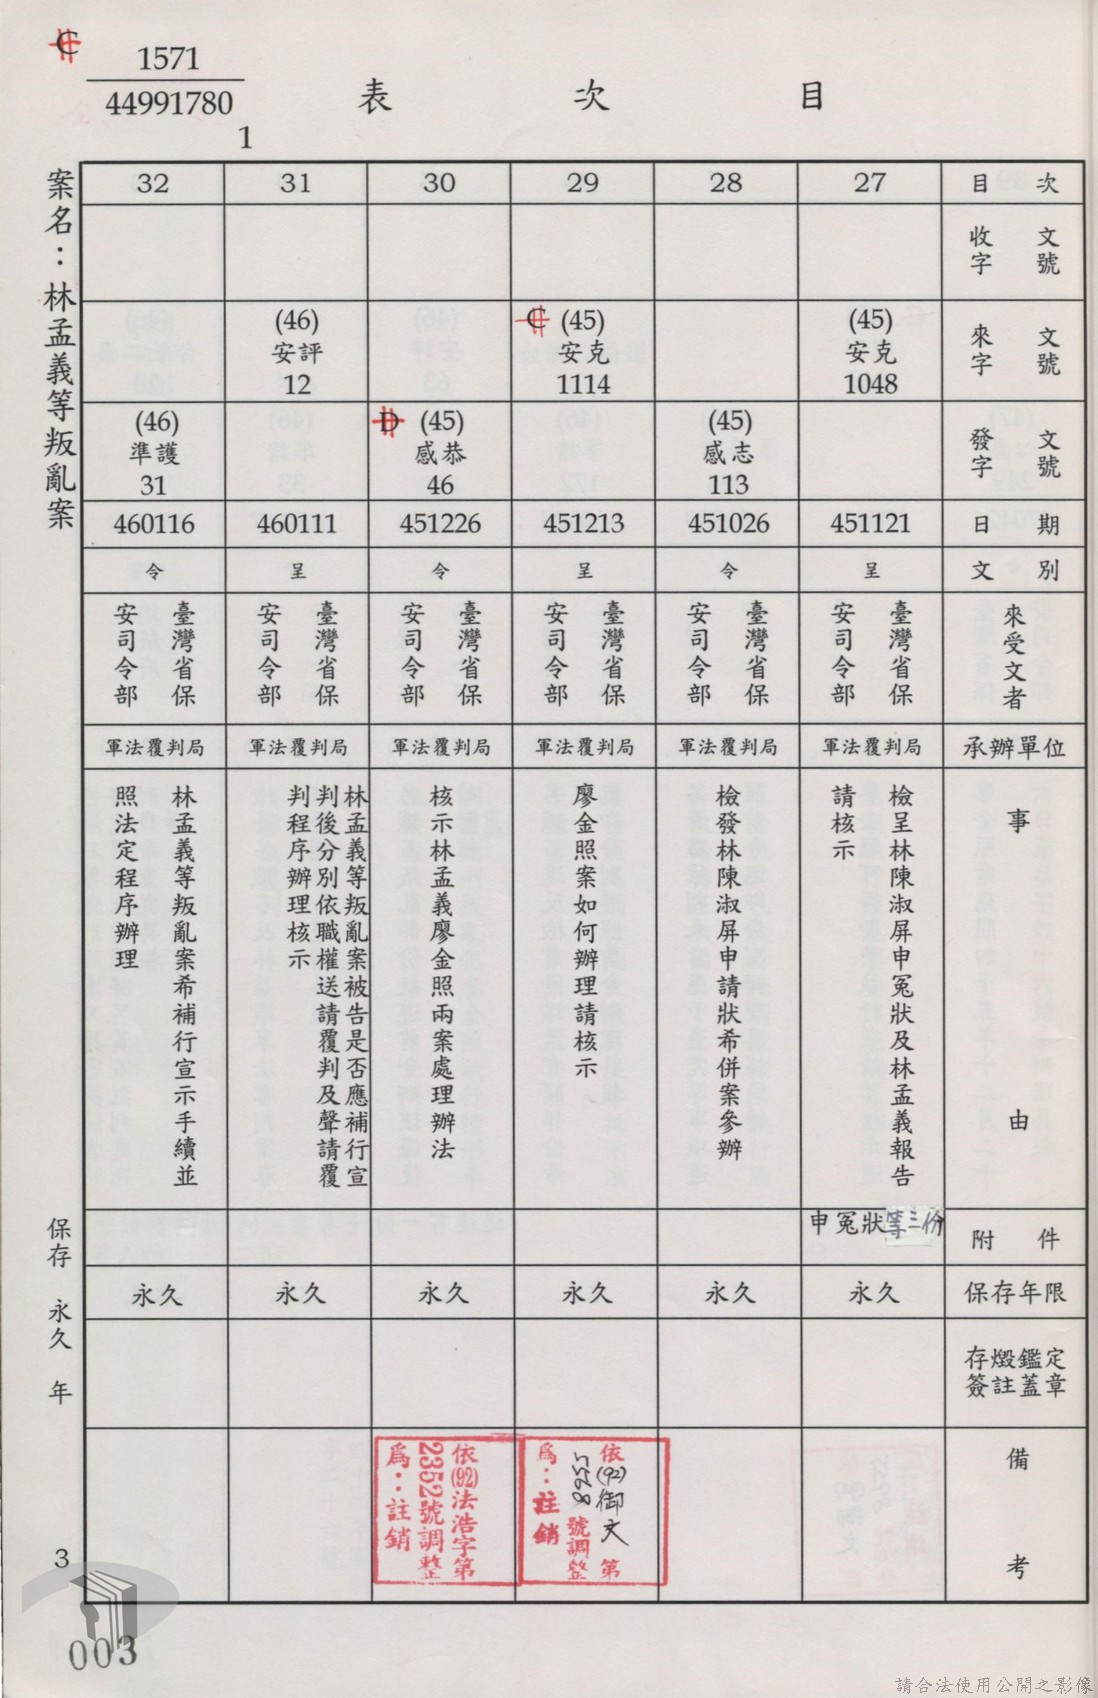 C
1571
44991780
1
目次表
案名：林孟義等叛亂案
保存 永久 年
3
目次
收文字號
來文字號
發文字號
日期
文別
來受文者
承辦單位
事由
附件
保存年限
存燬鑑定
簽註蓋章
備考
27
(45)
安克
1048
451121
呈
臺灣省保
安司令部
軍法覆判局
檢呈林陳淑屏申冤狀及林孟義報告
請核示
申冤狀等三份
永久
28
(45)
感志
113
451026
令
臺灣省保
安司令部
軍法覆判局
檢發林陳淑屏申請狀希併案參辦
永久
29
C
(45)
安克
1114
451213
呈
臺灣省保
安司令部
軍法覆判局
廖金照案如何辦理請核示
永久
依(92)御文第
8955號調整
為：註銷
30
D
(45)
感恭
46
451226
令
臺灣省保
安司令部
軍法覆判局
核示林孟義廖金照兩案處理辦法
永久
依(92)法浩字第
2352號調整
為：註銷
31
(46)
安評
12
460111
呈
臺灣省保
安司令部
軍法覆判局
林孟義等叛亂案被告是否應補行宣
判後分別依職權送請覆判及聲請覆
判程序辦理核示
永久
32
(46)
準護
31
460116
令
臺灣省保
安司令部
軍法覆判局
林孟義等叛亂案希補行宣示手續並
照法定程序辦理
永久
003
請合法使用公開之影像